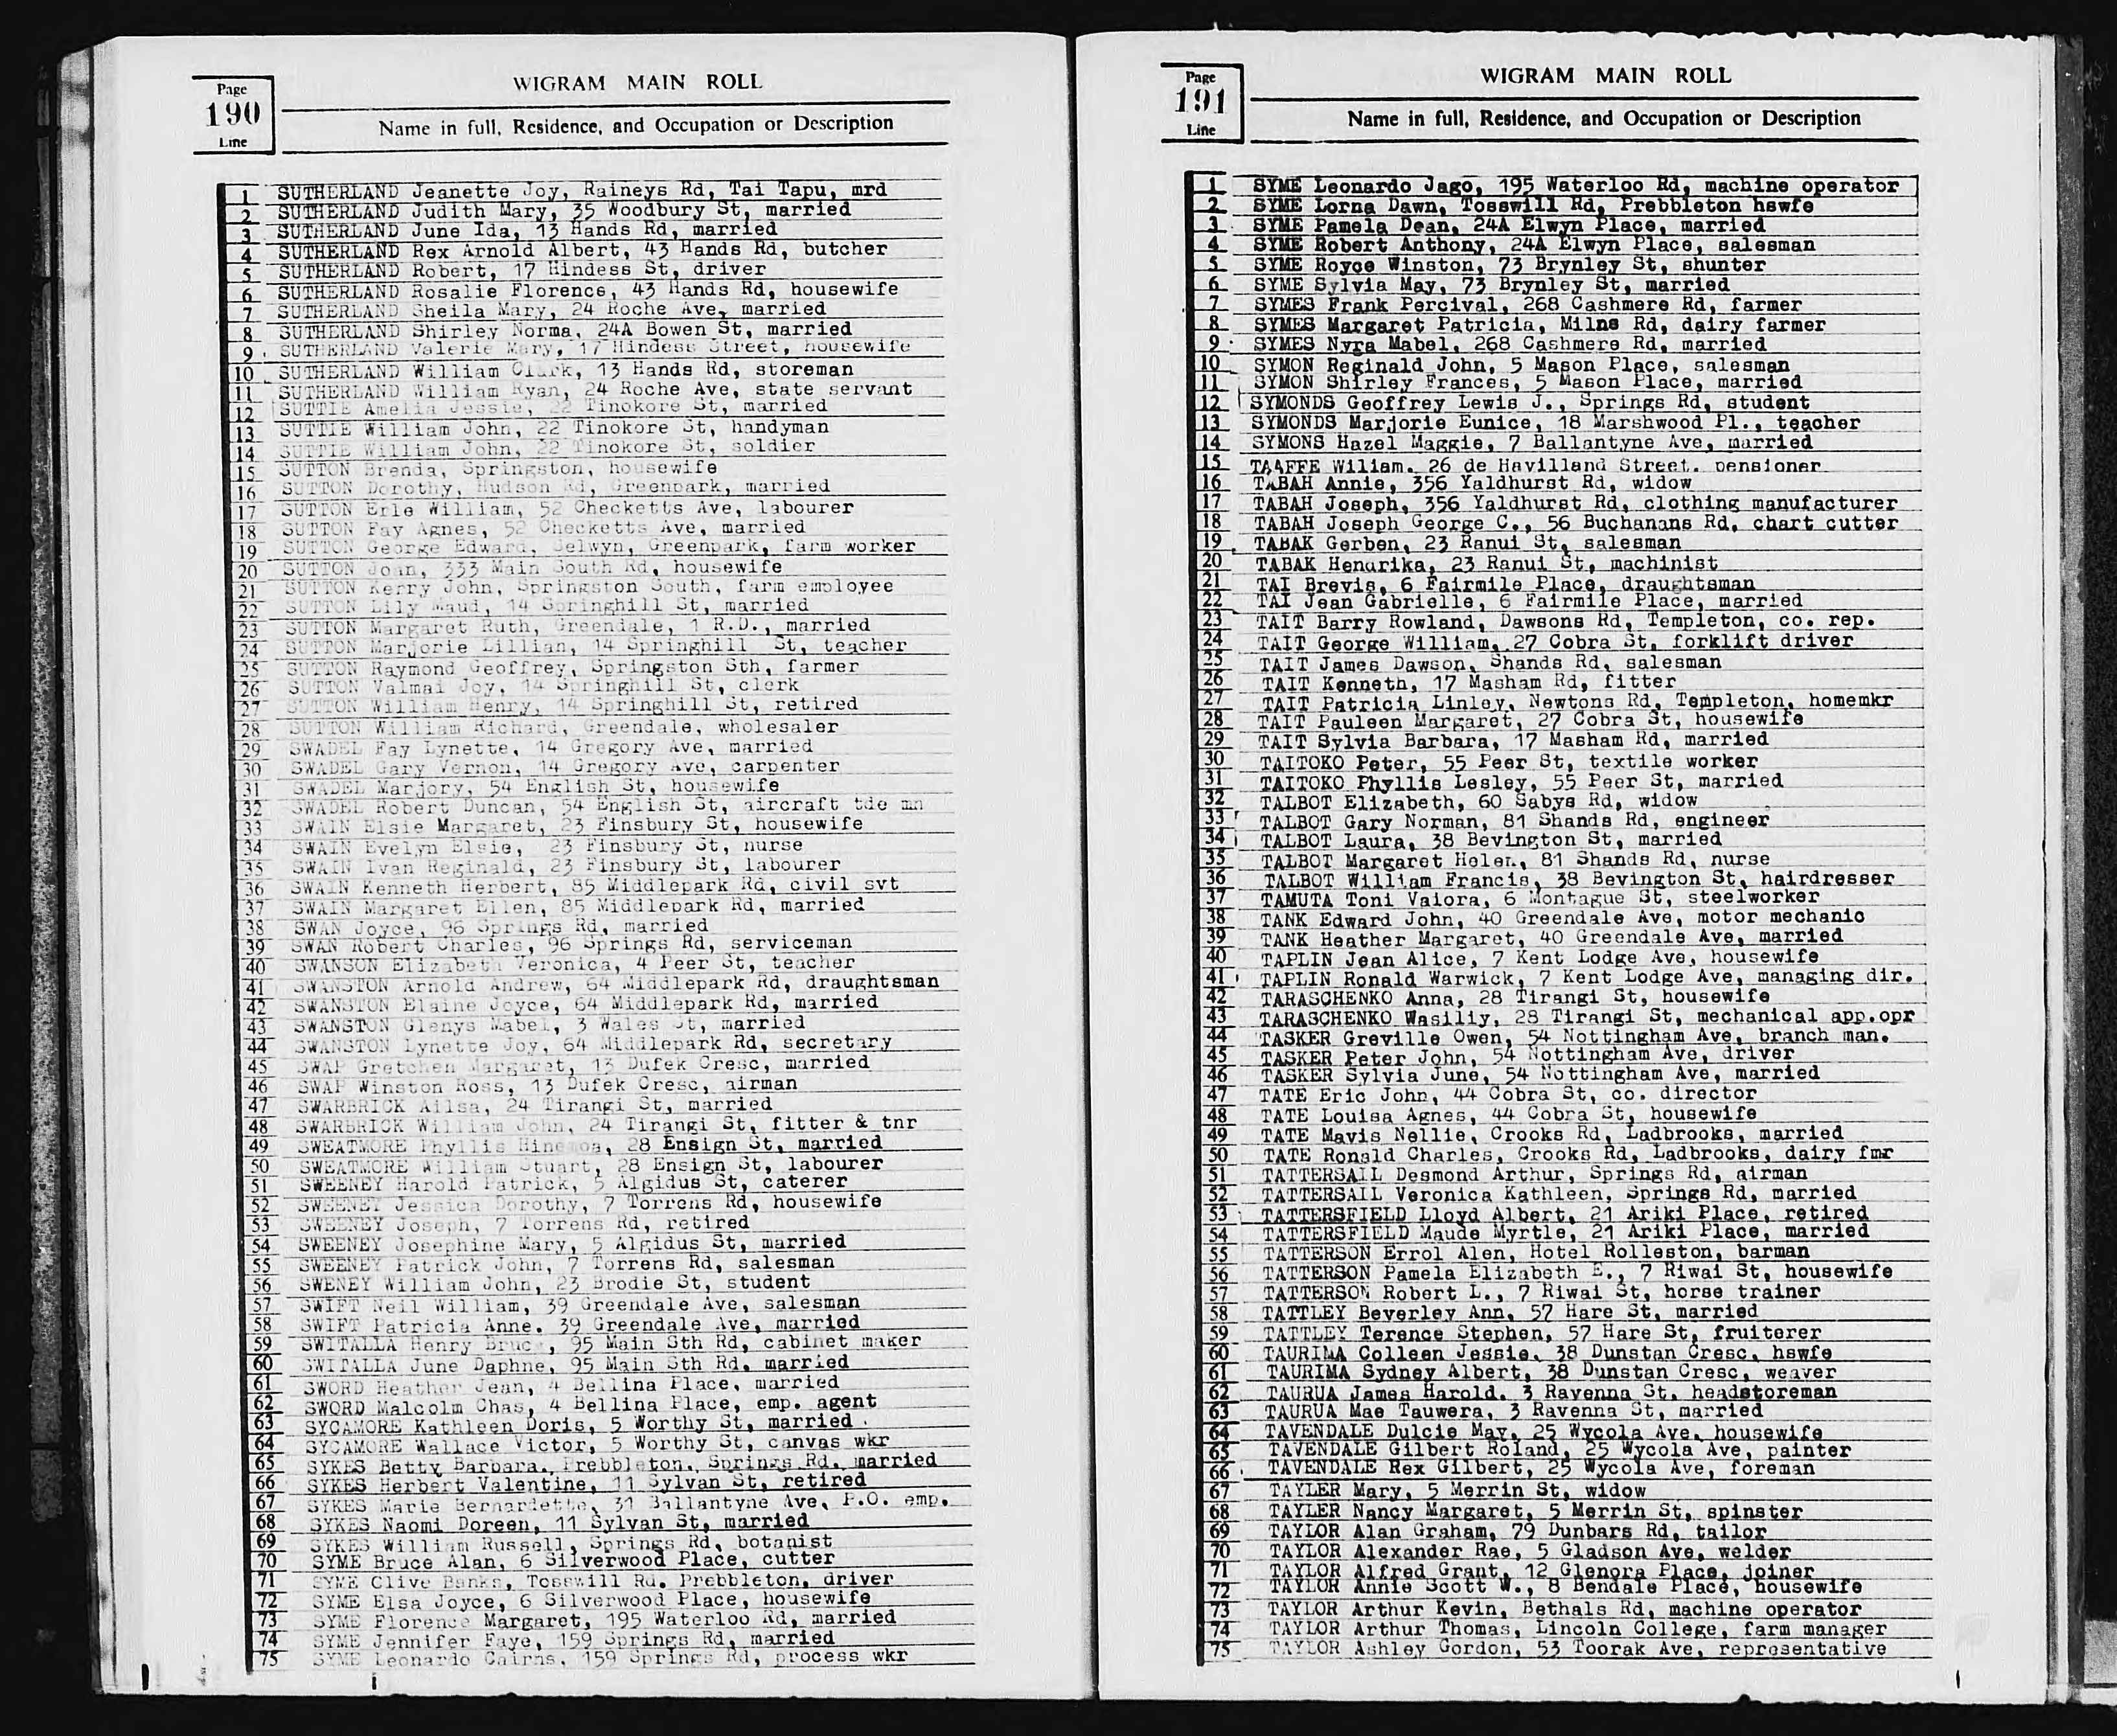 Page
190
Line
WIGRAM MAIN ROLL
Name in full, Residence, and Occupation or Description
1 SUTHERLAND Jeanette Joy, Raineys Rd, Tai Tapu, mrd
2 SUTHERLAND Judith Mary, 35 Woodbury St, married
3 SUTHERLAND June Ida, 13 Hands Rd, married
4 SUTHERLAND Rex Arnold Albert, 43 Hands Rd, butcher
5 SUTHERLAND Robert, 17 Hindess St, driver
6 SUTHERLAND Rosalie Florence, 43 Hands Rd, housewife
7 SUTHERLAND Sheila Mary, 24 Roche Ave, married
8 SUTHERLAND Shirley Norma, 24A Bowen St, married
9 SUTHERLAND Valerie Mary, 17 Hindess Street, housewife
10 SUTHERLAND William Clark, 13 Hands Rd, storeman
11 SUTHERLAND William Ryan, 24 Roche Ave, state servant
12 SUTTIE Amelia Jessie, 22 Tinokore St, married
13 SUTTIE William John, 22 Tinokore St, handyman
14 SUTTIE William John, 22 Tinokore St, soldier
15 SUTTON Brenda, Springston, housewife
16 SUTTON Dorothy, Hudson Rd, Greenpark, married
17 SUTTON Erle William, 52 Checketts Ave, labourer
18 SUTTON Fay Agnes, 52 Checketts Ave, married
19 SUTTON George Edward, Selwyn, Greenpark, farm worker
20 SUTTON Joan, 333 Main South Rd, housewife
21 SUTTON Kerry John, Springston South, farm employee
22 SUTTON Lily Maud, 14 Springhill St, married
23 SUTTON Margaret Ruth, Greendale, 1 R.D., married
24 SUTTON Marjorie Lillian, 14 Springhill St, teacher
25 SUTTON Raymond Geoffrey, Springston Sth, farmer
26 SUTTON Valmai Joy, 14 Springhill St, clerk
27 SUTTON William Henry, 14 Springhill St, retired
28 SUTTON William Richard, Greendale, wholesaler
29 SWADEL Fay Lynette, 14 Gregory Ave, married
30 SWADEL Gary Vernon, 14 Gregory Ave, carpenter
31 SWADEL Marjory, 54 English St, housewife
32 SWADEL Robert Duncan, 54 English St, aircraft tde mn
33 SWAIN Elsie Margaret, 23 Finsbury St, housewife
34 SWAIN Evelyn Elsie, 23 Finsbury St, nurse
35 SWAIN Ivan Reginald, 23 Finsbury St, labourer
36 SWAIN Kenneth Herbert, 85 Middlepark Rd, civil svt
37 SWAIN Margaret Ellen, 85 Middlepark Rd, married
38 SWAN Joyce, 96 Springs Rd, married
39 SWAN Robert Charles, 96 Springs Rd, serviceman
40 SWANSON Elizabeth Veronica, 4 Peer St, teacher
41 SWANSTON Arnold Andrew, 64 Middlepark Rd, draughtsman
42 SWANSTON Elaine Joyce, 64 Middlepark Rd, married
43 SWANSTON Glenys Mabel, 3 Wales St, married
44 SWANSTON Lynette Joy, 64 Middlepark Rd, secretary
45 SWAP Gretchen Margaret, 13 Dufek Cresc, married
46 SWAP Winston Ross, 13 Dufek Cresc, airman
47 SWARBRICK Ailsa, 24 Tirangi St, married
48 SWARBRICK William John, 24 Tirangi St, fitter & tnr
49 SWEATMORE Phyllis Hinemoa, 28 Ensign St, married
50 SWEATMORE William Stuart, 28 Ensign St, labourer
51 SWEENEY Harold Patrick, 5 Algidus St, caterer
52 SWEENEY Jessica Dorothy, 7 Torrens Rd, housewife
53 SWEENEY Joseph, 7 Torrens Rd, retired
54 SWEENEY Josephine Mary, 5 Algidus St, married
55 SWEENEY Patrick John, 7 Torrens Rd, salesman
56 SWENEY William John, 23 Brodie St, student
57 SWIFT Neil William, 39 Greendale Ave, salesman
58 SWIFT Patricia Anne. 39 Greendale Ave, married
59 SWITALLA Henry Bruce, 95 Main Sth Rd, cabinet maker
60 SWITALLA June Daphne, 95 Main Sth Rd, married
61 SWORD Heather Jean, 4 Bellina Place, married
62 SWORD Malcolm Chas, 4 Bellina Place, emp. agent
63 SYCAMORE Kathleen Doris, 5 Worthy St, married
64 SYCAMORE Wallace Victor, 5 Worthy St, canvas wkr
65 SYKES Betty Barbara, Prebbleton, Springs Rd, married
66 SYKES Herbert Valentine, 11 Sylvan St, retired
67 SYKES Marie Bernardette, 31 Ballantyne Ave, P.O. emp.
68 SYKES Naomi Doreen, 11 Sylvan St, married
69 SYKES William Russell, Springs Rd, botanist
70 SYME Bruce Alan, 6 Silverwood Place, cutter
71 SYME Clive Banks, Tosswill Rd. Prebbleton, driver
72 SYME Elsa Joyce, 6 Silverwood Place, housewife
73 SYME Florence Margaret, 195 Waterloo Rd, married
74 SYME Jennifer Faye, 159 Springs Rd, married
75 SYME Leonardo Cairns, 159 Springs Rd, process wkr
Page
191
Line
WIGRAM MAIN ROLL
Name in full, Residence, and Occupation or Description
1 SYME Leonardo Jago, 195 Waterloo Rd, machine operator
2 SYME Lorna Dawn, Tosswill Rd, Prebbleton hswfe
3 SYME Pamela Dean, 24A Elwyn Place, married
4 SYME Robert Anthony, 24A Elwyn Place, salesman
5 SYME Royce Winston, 73 Brynley St, shunter
6 SYME Sylvia May, 73 Brynley St, married
7 SYMES Frank Percival, 268 Cashmere Rd, farmer
8 SYMES Margaret Patricia, Milns Rd, dairy farmer
9 SYMES Nyra Mabel, 268 Cashmere Rd, married
10 SYMON Reginald John, 5 Mason Place, salesman
11 SYMON Shirley Frances, 5 Mason Place, married
12 SYMONDS Geoffrey Lewis J., Springs Rd, student
13 SYMONDS Marjorie Eunice, 18 Marshwood Pl., teacher
14 SYMONS Hazel Maggie, 7 Ballantyne Ave, married
15 TAAFFE Wiliam. 26 de Havilland Street. pensioner
16 TABAH Annie, 356 Yaldhurst Rd, widow
17 TABAH Joseph, 356 Yaldhurst Rd, clothing manufacturer
18 TABAH Joseph George C., 56 Buchanans Rd, chart cutter
19 TABAK Gerben, 23 Ranui St, salesman
20 TABAK Hendrika, 23 Ranui St, machinist
21 TAI Brevis, 6 Fairmile Place, draughtsman
22 TAI Jean Gabrielle, 6 Fairmile Place, married
23 TAIT Barry Rowland, Dawsons Rd, Templeton, co. rep.
24 TAIT George William, 27 Cobra St, forklift driver
25 TAIT James Dawson, Shands Rd, salesman
26 TAIT Kenneth, 17 Masham Rd, fitter
27 TAIT Patricia Linley, Newtons Rd, Templeton, homemkr
28 TAIT Pauleen Margaret, 27 Cobra St, housewife
29 TAIT Sylvia Barbara, 17 Masham Rd, married
30 TAITOKO Peter, 55 Peer St, textile worker
31 TAITOKO Phyllis Lesley, 55 Peer St, married
32 TALBOT Elizabeth, 60 Sabys Rd, widow
33 TALBOT Gary Norman, 81 Shands Rd, engineer
34 TALBOT Laura, 38 Bevington St, married
35 TALBOT Margaret Helen, 81 Shands Rd, nurse
36 TALBOT William Francis, 38 Bevington St, hairdresser
37 TAMUTA Toni Vaiora, 6 Montague St, steelworker
38 TANK Edward John, 40 Greendale Ave, motor mechanic
39 TANK Heather Margaret, 40 Greendale Ave, married
40 TAPLIN Jean Alice, 7 Kent Lodge Ave, housewife
41 TAPLIN Ronald Warwick, 7 Kent Lodge Ave, managing dir.
42 TARASCHENKO Anna, 28 Tirangi St, housewife
43 TARASCHENKO Wasiliy, 28 Tirangi St, mechanical app.opr
44 TASKER Greville Owen, 54 Nottingham Ave, branch man.
45 TASKER Peter John, 54 Nottingham Ave, driver
46 TASKER Sylvia June, 54 Nottingham Ave, married
47 TATE Eric John, 44 Cobra St, co. director
48 TATE Louisa Agnes, 44 Cobra St, housewife
49 TATE Mavis Nellie, Crooks Rd, Ladbrooks, married
50 TATE Ronald Charles, Crooks Rd, Ladbrooks, dairy fmr
51 TATTERSAIL Desmond Arthur, Springs Rd, airman
52 TATTERSAIL Veronica Kathleen, Springs Rd, married
53 TATTERSFIELD Lloyd Albert, 21 Ariki Place, retired
54 TATTERSFIELD Maude Myrtle, 21 Ariki Place, married
55 TATTERSON Errol Alen, Hotel Rolleston, barman
56 TATTERSON Pamela Elizabeth E., 7 Riwai St, housewife
57 TATTERSON Robert L., 7 Riwai St, horse trainer
58 TATTLEY Beverley Ann, 57 Hare St, married
59 TATTLEY Terence Stephen, 57 Hare St, fruiterer
60 TAURIMA Colleen Jessie, 38 Dunstan Cresc, hswfe
61 TAURIMA Sydney Albert, 38 Dunstan Cresc, weaver
62 TAURUA James Harold. 3 Ravenna St. headstoreman
63 TAURUA Mae Tauwera, 3 Ravenna St, married
64 TAVENDALE Dulcie May, 25 Wycola Ave, housewife
65 TAVENDALE Gilbert Roland, 25 Wycola Ave, painter
66 TAVENDALE Rex Gilbert, 25 Wycola Ave, foreman
67 TAYLER Mary, 5 Merrin St, widow
68 TAYLER Nancy Margaret, 5 Merrin St, spinster
69 TAYLOR Alan Graham, 79 Dunbars Rd, tailor
70 TAYLOR Alexander Rae, 5 Gladson Ave, welder
71 TAYLOR Alfred Grant, 12 Glenora Place, joiner
72 TAYLOR Annie Scott W., 8 Bendale Place, housewife
73 TAYLOR Arthur Kevin, Bethals Rd, machine operator
74 TAYLOR Arthur Thomas, Lincoln College, farm manager
75 TAYLOR Ashley Gordon, 53 Toorak Ave, representative